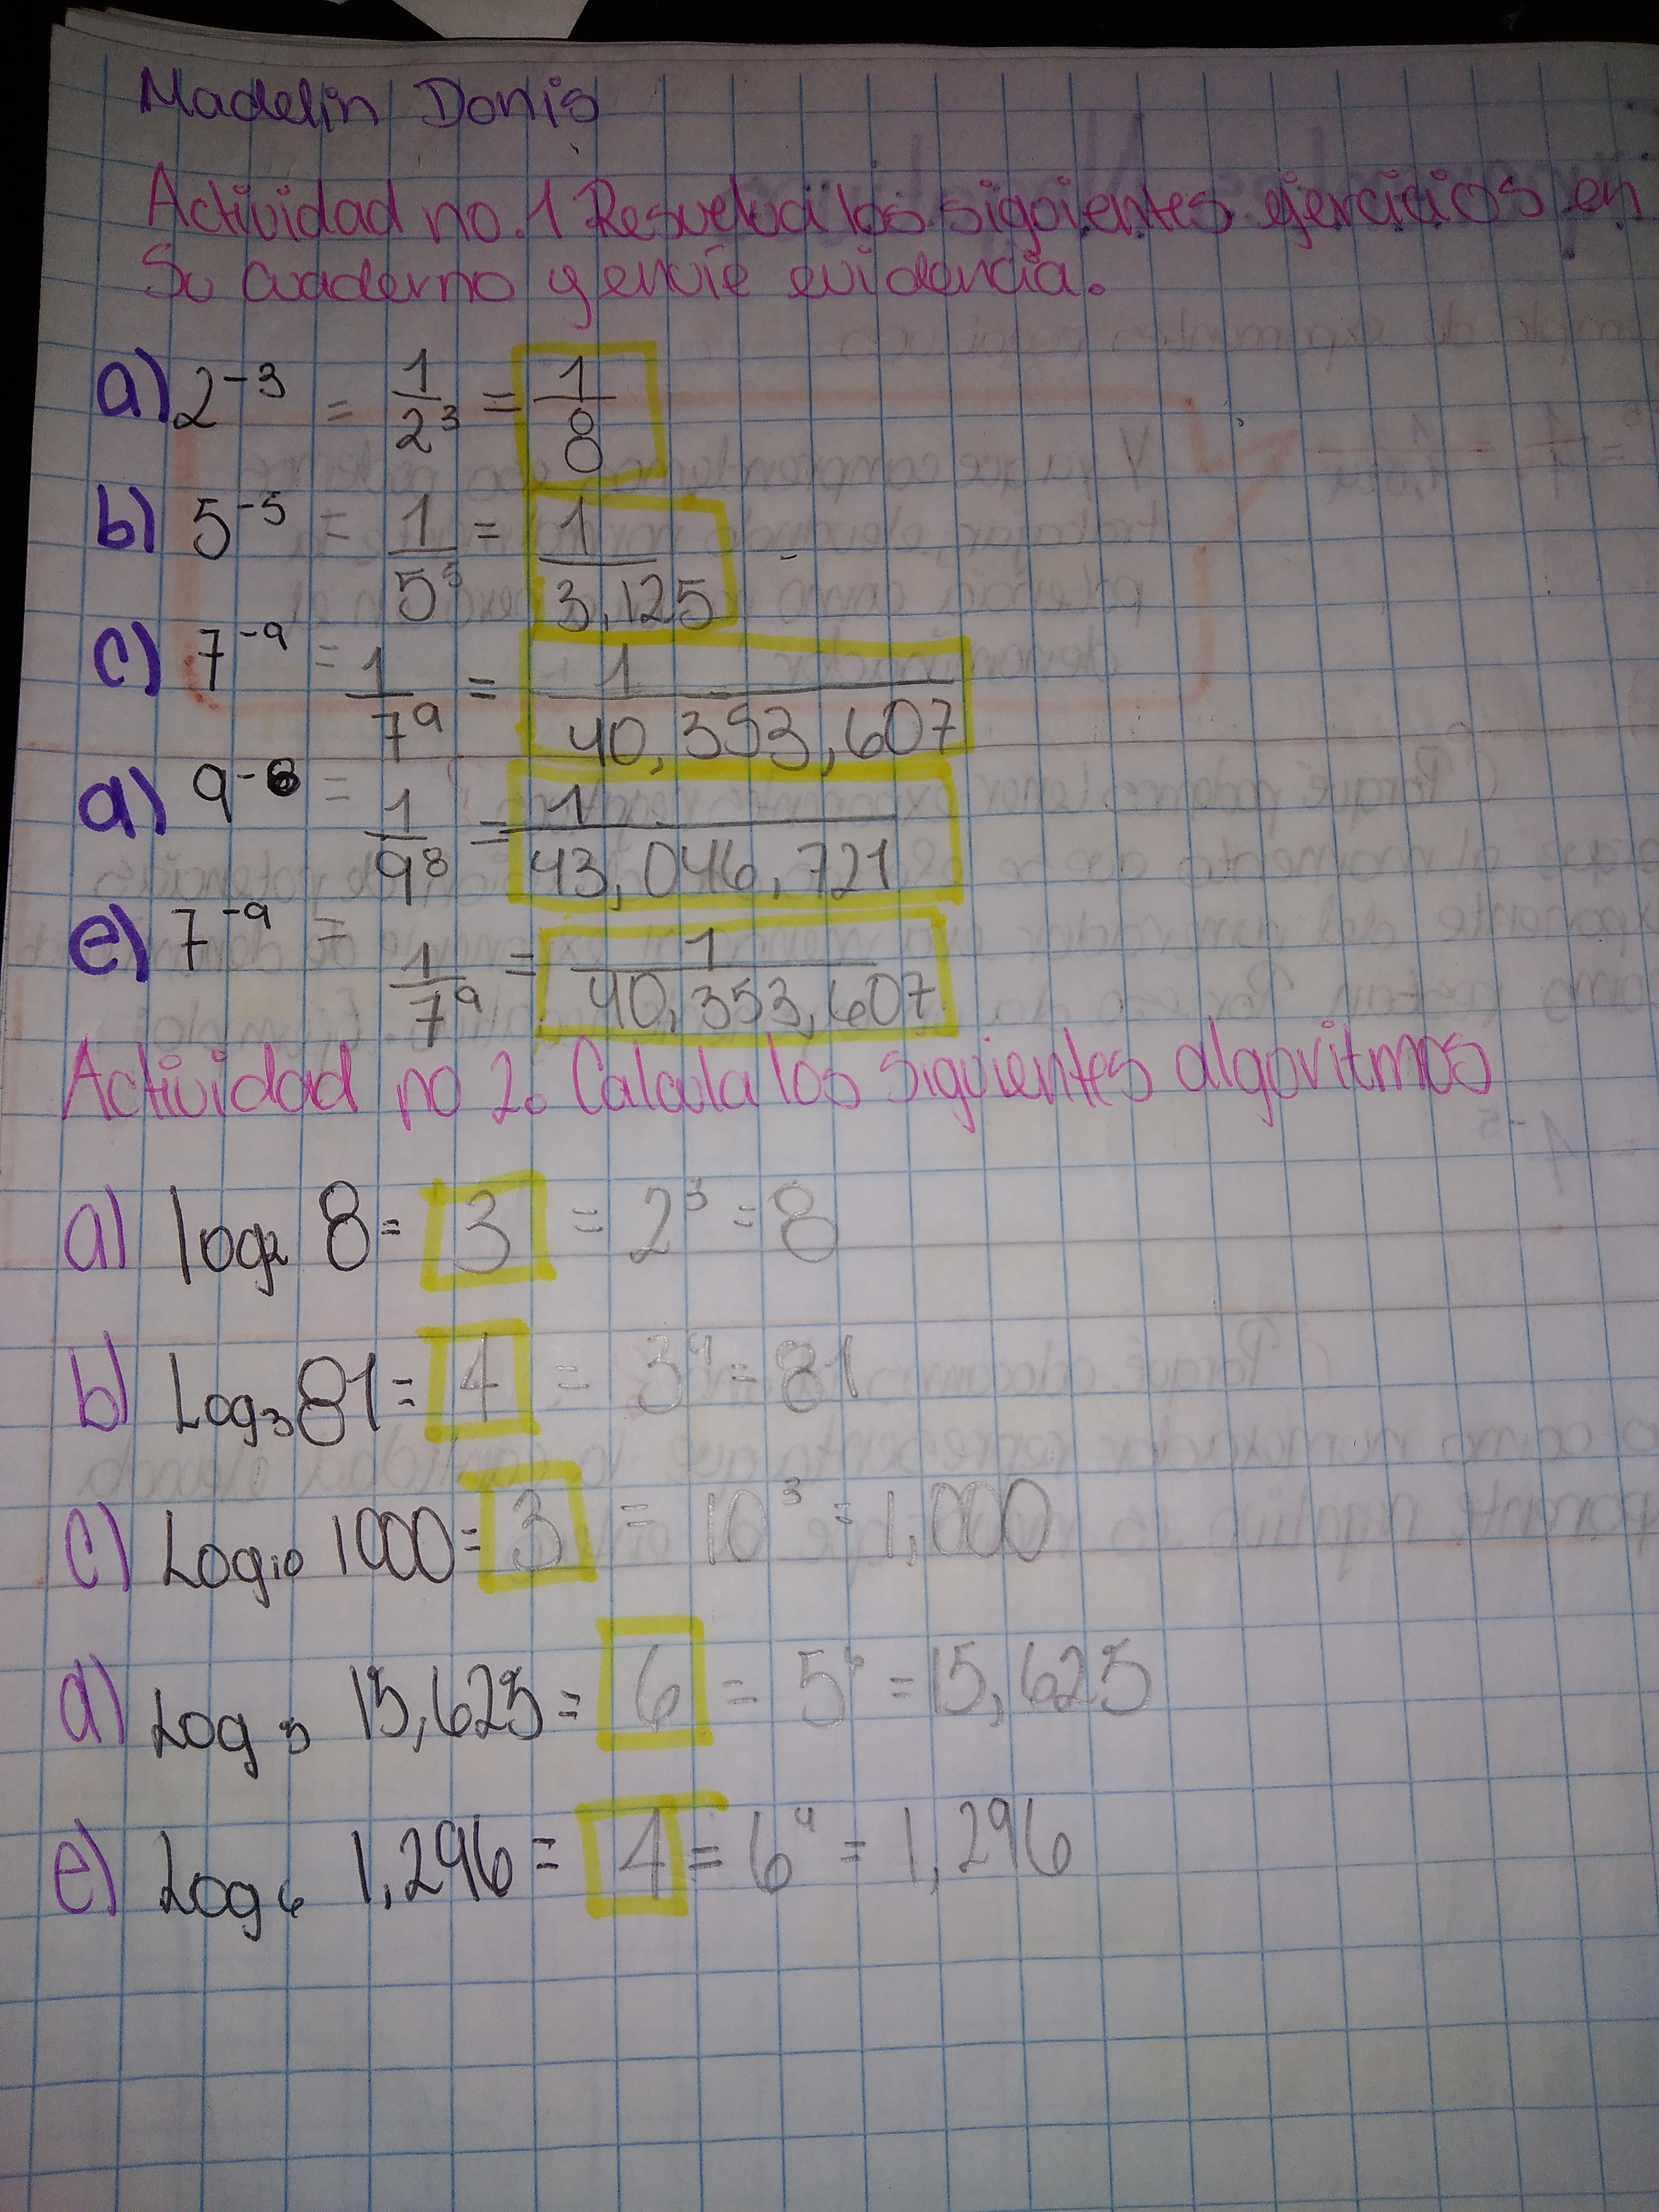 Madelin Donis
Actividad no. 1 Resuelva los siguientes ejercicios en
Su cuaderno y envíe evidencia.
a) 2⁻³ = 1/2³ = 1/8
b) 5⁻⁵ = 1/5⁵ = 1/3,125
c) 7⁻⁹ = 1/7⁹ = 1/40,353,607
d) 9⁻⁸ = 1/9⁸ = 1/43,046,721
e) 7⁻⁹ = 1/7⁹ = 1/40,353,607
Actividad no 2. Calcula los siguientes algoritmos
a) log₂ 8 = 3 = 2³ = 8
b) Log₃ 81 = 4 = 3⁴ = 81
c) Log₁₀ 1000 = 3 = 10³ = 1,000
d) Log ₅ 15,625 = 6 = 5⁶ = 15,625
e) Log ₆ 1,296 = 4 = 6⁴ = 1,296